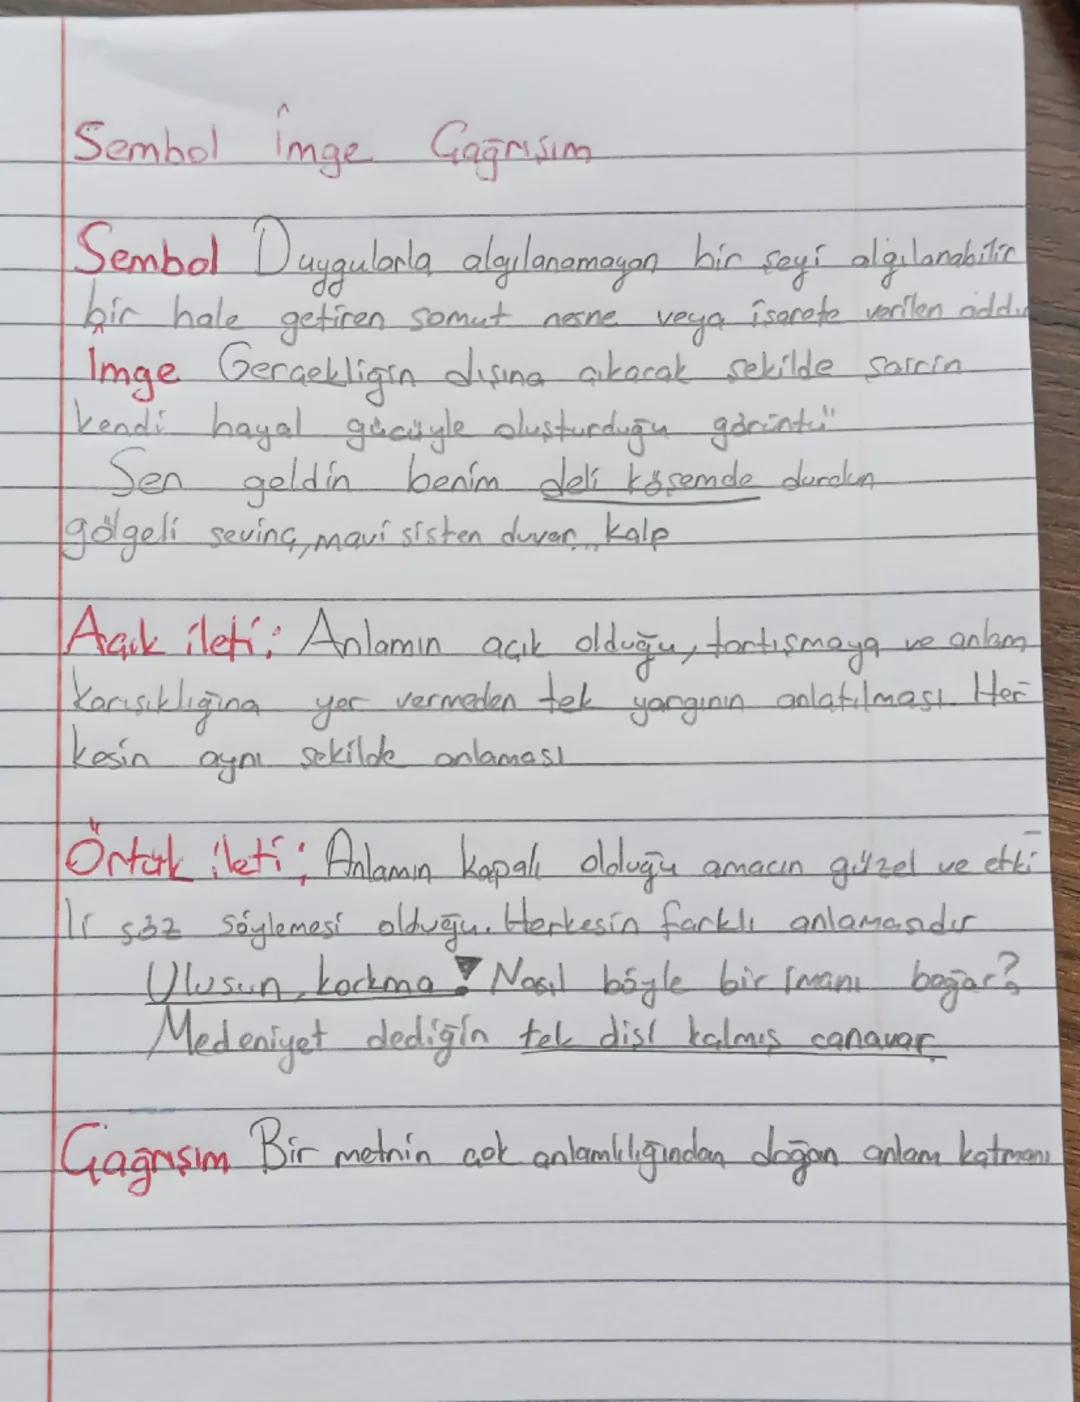 Sembol İmge Çağrışım
Sembol Duygularla algılanamayan bir şeyi algılanabilir
bir hale getiren somut nesne veya işarete verilen addır
İmge Gerçekliğin dışına çıkacak şekilde şairin
kendi hayal gücüyle oluşturduğu görüntü"
Sen geldin benim deli köşemde durdun
gölgeli sevinç, mavi sisten duvar, kalp
Açık ileti: Anlamın açık olduğu, tartışmaya ve anlam
karışıklığına yer vermeden tek yargının anlatılması. Her-
kesin aynı şekilde anlaması
Örtük ileti; Anlamın kapalı olduğu amacın güzel ve etki-
li söz söylemesi olduğu. Herkesin farklı anlamasıdır
Ulusun, korkma! Nasıl böyle bir imanı boğar?
Medeniyet dediğin tek dişi kalmış canavar
Çağrışım Bir metnin çok anlamlılığından doğan anlam katmanı